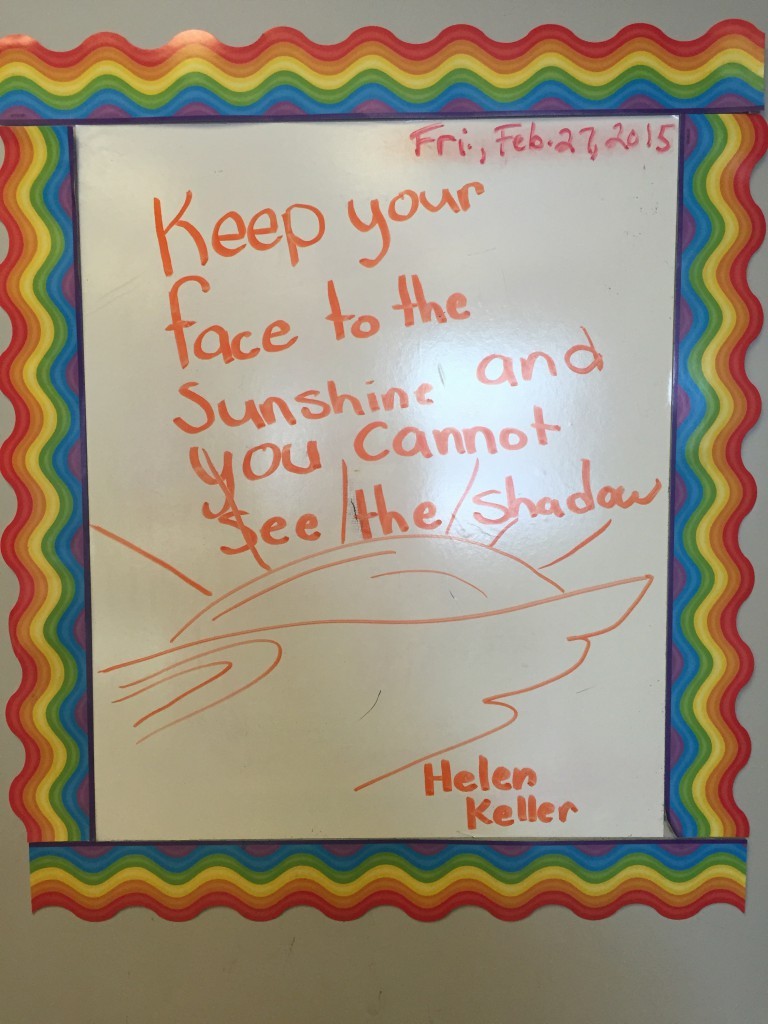 Fri., Feb. 27, 2015
Keep your
face to the
sunshine and
you cannot
see the shadow
Helen
Keller